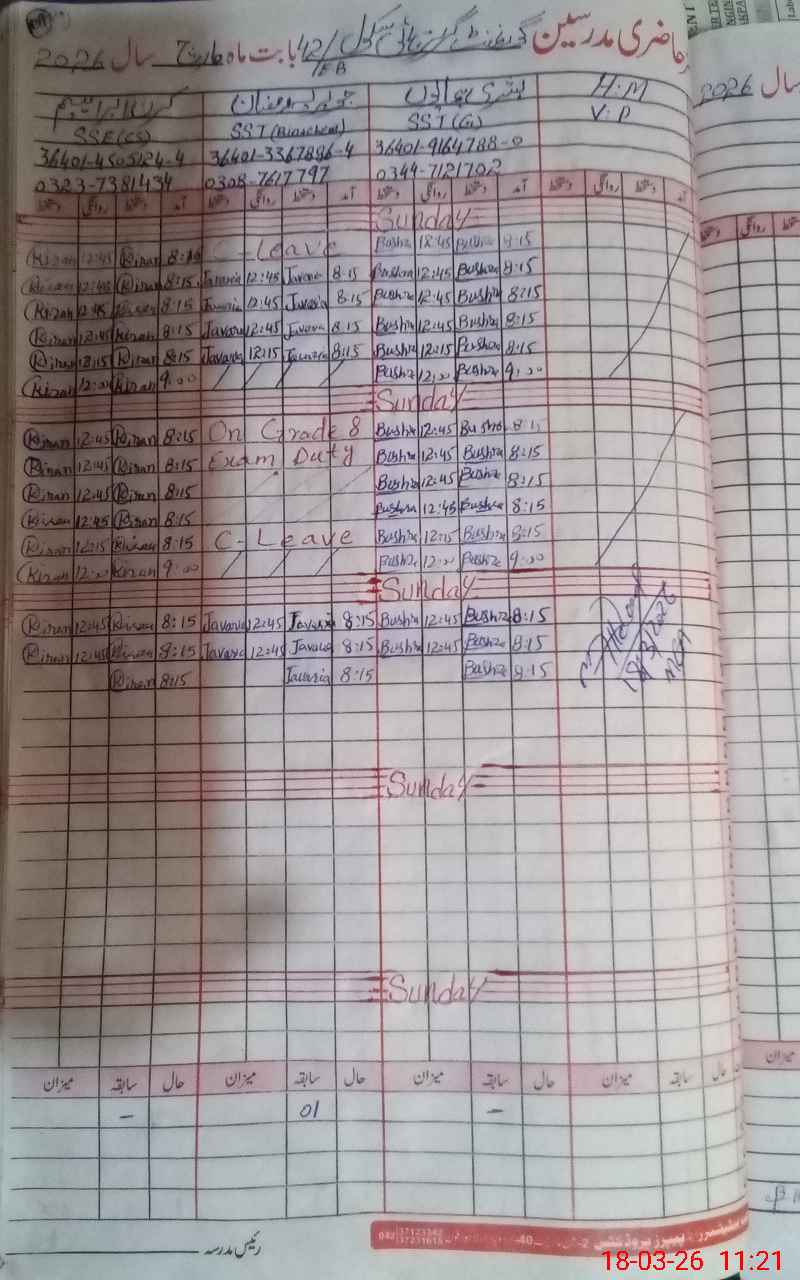 حاضری مدرسین گورنمنٹ گرلز ہائی سکول 42/EB بابت ماہ مارچ سال 2026
H.M بشریٰ
V.P
SST(G) SST(Biochem) SSE(CS)
36401-9164788-0 36401-3367896-4 36401-4505124-4
0344-7121702 0308-7617797 0323-7381434
آمد دستخط روانگی دستخط آمد دستخط روانگی دستخط آمد دستخط روانگی دستخط آمد دستخط روانگی دستخط
Sunday
Kiran 12:45 Kiran 8:15 C-Leave Bushra 12:45 Bushra 8:15
Kiran 12:45 Kiran 8:15 Javaria 12:45 Javaria 8:15 Bushra 12:45 Bushra 8:15
Kiran 12:45 Kiran 8:15 Javaria 12:45 Javaria 8:15 Bushra 12:45 Bushra 8:15
Kiran 12:45 Kiran 8:15 Javaria 12:45 Javaria 8:15 Bushra 12:45 Bushra 8:15
Kiran 12:15 Kiran 8:15 Javaria 12:15 Javaria 8:15 Bushra 12:15 Bushra 8:15
Kiran 12:00 Kiran 9:00 Bushra 12:00 Bushra 9:00
Sunday
Kiran 12:45 Kiran 8:15 On Grade 8 Bushra 12:45 Bushra 8:15
Kiran 12:45 Kiran 8:15 Exam Duty Bushra 12:45 Bushra 8:15
Kiran 12:45 Kiran 8:15 Bushra 12:45 Bushra 8:15
Kiran 12:45 Kiran 8:15 Bushra 12:45 Bushra 8:15
Kiran 12:15 Kiran 8:15 C-Leave Bushra 12:15 Bushra 8:15
Kiran 12:00 Kiran 9:00 Bushra 12:00 Bushra 9:00
Sunday
Kiran 12:45 Kiran 8:15 Javaria 12:45 Javaria 8:15 Bushra 12:45 Bushra 8:15
Kiran 12:45 Kiran 8:15 Javaria 12:45 Javaria 8:15 Bushra 12:45 Bushra 8:15
Kiran 8:15 Javaria 8:15 Bushra 8:15
Sunday
Sunday
حال سابقہ میزان حال سابقہ میزان حال سابقہ میزان حال سابقہ میزان
- 01 -
رئیس مدرسہ
042 37123342
37231618
سال 2026
دستخط روانگی دستخط
میزان
18-03-26 11:21